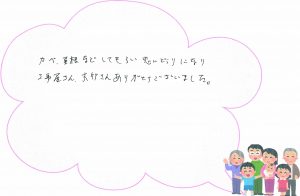 カベ、屋根などしてもらい きれいになり
工事屋さん、 さんありがとうございました。